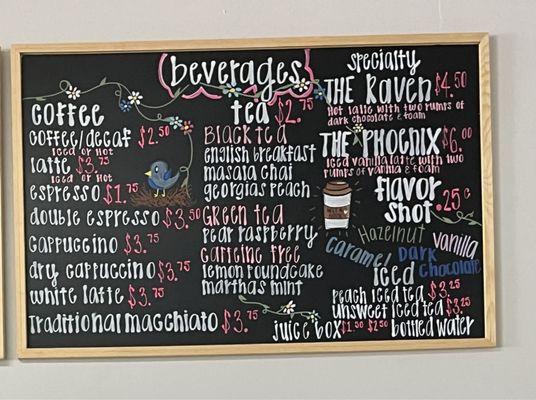 beverages
coffee
coffee/decaf $2.50
iced or hot
latte $3.75
iced or hot
espresso $1.75
double espresso $3.50
cappuccino $3.75
dry cappuccino $3.75
white latte $3.75
Traditional macchiato $3.75
tea $2.75
Black tea
english breakfast
masala chai
georgias peach
Green tea
pear raspberry
caffeine free
lemon poundcake
marthas mint
specialty
THE Raven $4.50
Hot latte with two pumps of
dark chocolate & foam
THE PHOENIX $6.00
Iced vanilla latte with two
pumps of vanilla & foam
flavor
shot .25¢
Hazelnut vanilla
caramel Dark
chocolate
iced
peach iced tea $3.25
unsweet iced tea $3.25
juice box $1.50 $2.50 bottled water